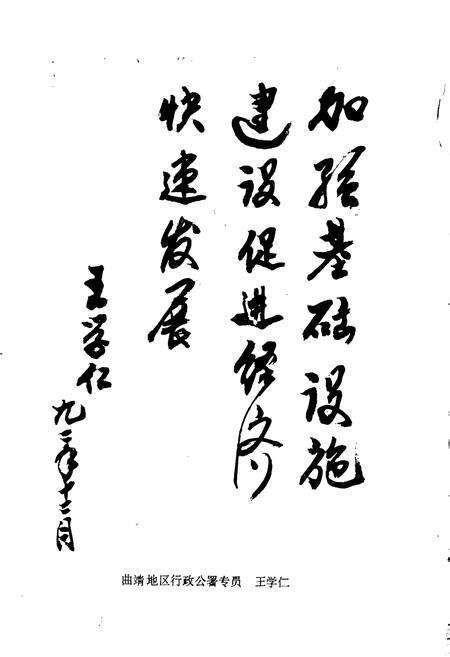 加强基础设施
建设促进经济
快速发展
王学仁
九二年十二月
曲靖地区行政公署专员 王学仁